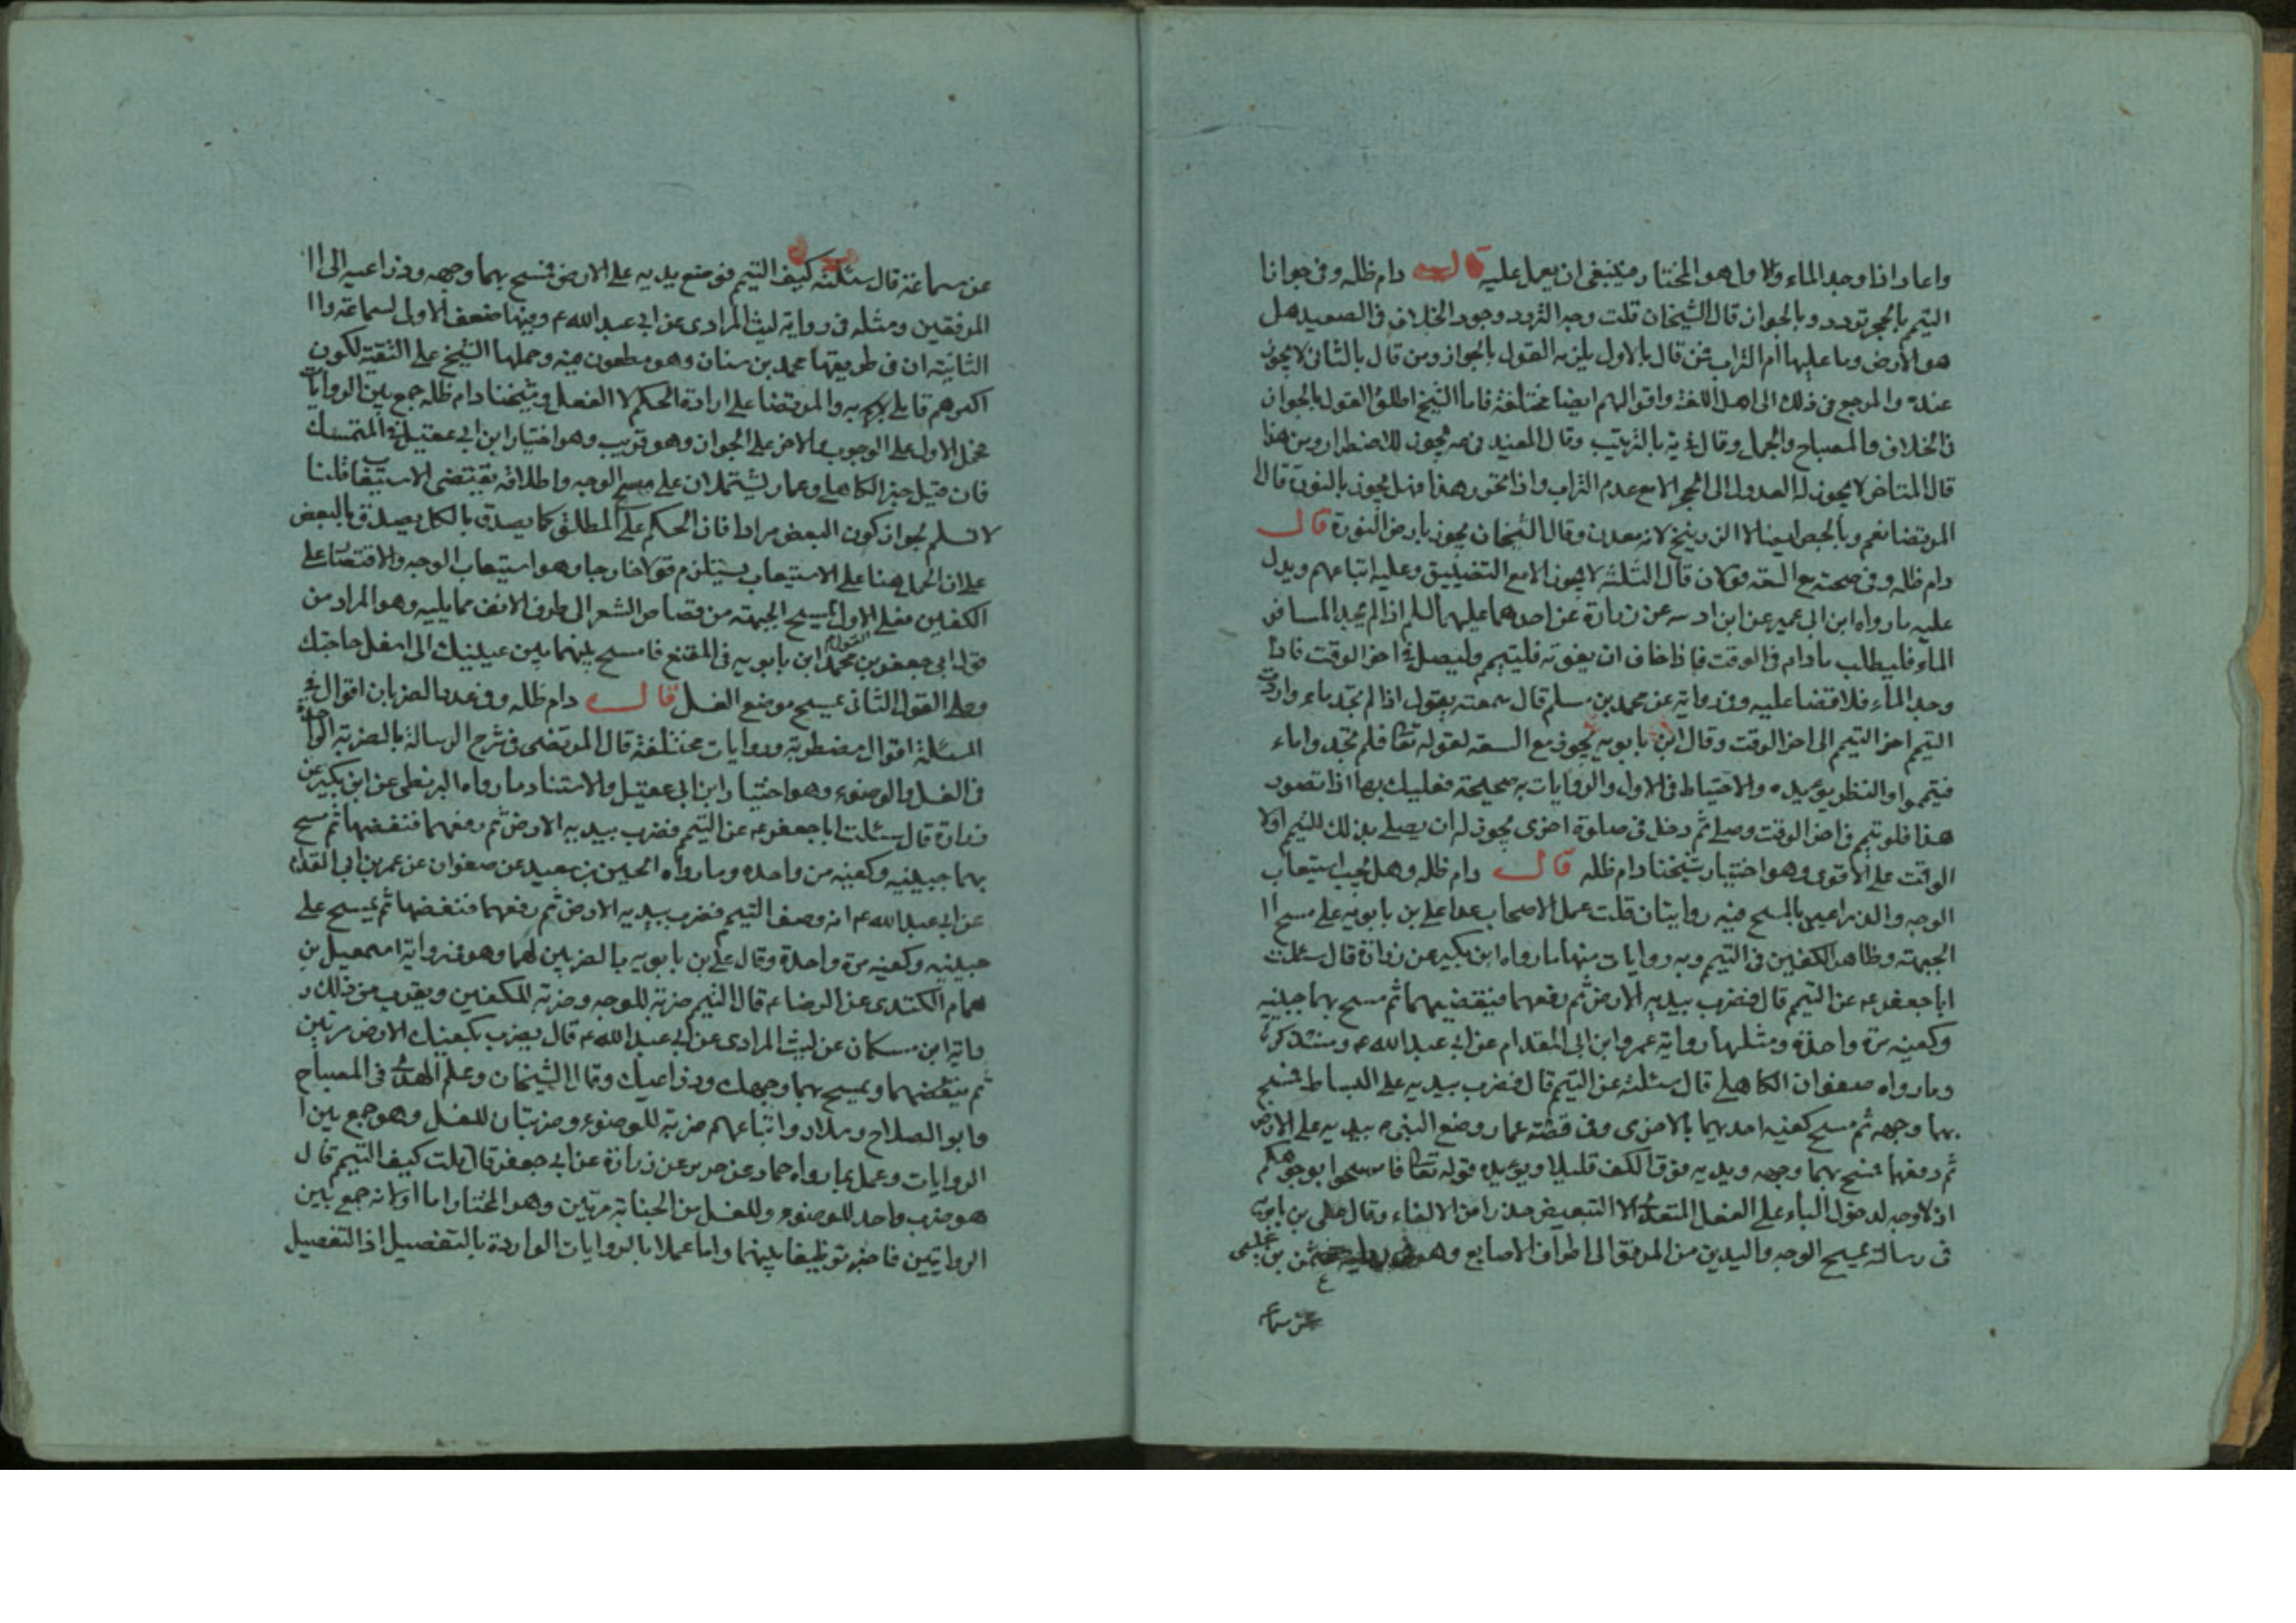 واعاد اذا وجد الماء والاول هو المختار فينبغى ان يعمل عليه قال دام ظله وفى جواز ا
التيمم بالحجر تردد وبالجواز قال الشيخان قلت وجه التردد وجود الخلاف فى الصعيد هل
هو الارض وما عليها ام التراب فمن قال بالاول يلزمه القول بالجواز ومن قال بالثانى لا يجوز
عنده والمرجع فى ذلك الى اهل اللغة واقوالهم ايضا مختلفة فاما الشيخ اطلق القول بالجواز
فى الخلاف والمصباح والجمل وقال فى يه بالترتيب وقال المفيد فى عه يجوز للاضطرار ومن هذا
قال المتاخر لا يجوز له العدول الى الحجر الا مع عدم التراب واذا تحور هذا فهل يجوز بالنورة قال ا
المرتضا نعم وبالجص ايضا لا الزرنيخ لانه معدن وقال الشيخان يجوز بارض النورة قال
دام ظله وفى صحته مع السعه قولان قال الثلثه لا يجوز الا مع التضييق وعليه اتباعهم ويدل
عليه ما رواه ابن ابى عمير عن ابن اد سه عن زرارة عن احدهما عليهما السلم اذا لم يجد المسافر
الماء فليطلب مادام فى الوقت فاذا خاف ان يفوته فليتيمم وليصل فى اخر الوقت فاذا
وجد الماء فلا قضا عليه وفى رواية عن محمد بن مسلم قال سمعته يقول اذا لم تجد ماء واردت
التيمم اخر التيمم الى اخر الوقت وقال ابن بابويه يجوز مع السعه لقوله تعا فلم تجدوا ماء
فتيمموا والنظر يؤيده والاحتياط فى الاول والروايات به صحيحة فعليك بها اذا تصورت
هذا فلو تيمم فى اخر الوقت وصلى ثم دخل فى صلوة اخرى يجوز له ان يصلى بذلك التيمم اول
الوقت على الاقوى وهو اختيار شيخنا دام ظله قال دام ظله وهل يجب استيعاب
الوجه والذراعين بالمسح فيه روايتان قلت عمل الاصحاب عدا على بن بابويه على مسح ا
الجبهة وظاهر الكفين فى التيمم وبه روايات منها ما رواه ابن بكير عن زرارة قال سئلت
ابا جعفر عه عن التيمم قال فضرب بيديه الارض ثم رفعهما فنفضهما ثم مسح بهما جبينيه
وكفيه مرة واحدة ومثلها رواية عمرو ابن ابى المقدام عن ابى عبد الله ع وسنذكر
وما رواه صفوان الكاهلى قال سئلته عن التيمم قال فضرب بيديه على البساط فمسح
بهما وجهه ثم مسح كفيه احديهما بالاخرى وفى قصة عمار وضع النبى ص بيديه على الارض
ثم رفعها فمسح بهما وجهه ويديه فوق الكف قليلا ويؤيده قوله تعا فامسحوا بوجوهكم
اذ لا وجه لدخول الباء على الفعل المتعدى الا التبعيض حذرا من الالغاء وقال على بن بابويه
فى رسالته يمسح الوجه واليدين من المرفق الى اطراف الاصابع وهو
عن سما
عن سماعة قال سئلته كيف التيمم فوضع يديه على الارض فمسح بهما وجهه وذراعيه الى ا
المرفقين ومثله فى رواية ليث المرادى عن ابى عبد الله ع وفيها ضعف الاولى لسماعة وا
الثانية ان فى طريقها محمد بن سنان وهو مطعون فيه وحملها الشيخ على التقية لكون
اكثرهم قايلى به والمرتضا على ارادة الحكم لا الفعل وشيخنا دام ظله جمع بين الروايات
فحمل الاول على الوجوب والاخر على الجواز وهو قريب وهو اختيار ابن ابى عقيل والمتمسك
فان قيل خبر الكاهلى وعمار يشتملان على مسح الوجه واطلاقه يقتضى الاستيفا قلنا
لا نسلم لجواز كون البعض مرادا فان الحكم على المطلق كما يصدق بالكل يصدق بالبعض
على ان الحمل هنا على الاستيعاب يستلزم قولا خارجا وهو استيعاب الوجه والاقتصار على
الكفين فعلى الاول يمسح الجبهة من قصاص الشعر الى طرف الانف مما يليه وهو المراد من
قول ابى جعفر بن محمد ابن بابويه فى المقنع فامسح بهما بين عينيك الى اسفل حاجبك
وعلى القول الثانى يمسح موضع الغسل قال دام ظله وفى عدد الضربان اقوال فى
المسئلة اقوال مضطربة وروايات مختلفة قال المرتضى فى شرح الرسالة بالضربة الواحدة
فى الغسل والوضوء وهو اختيار ابن ابى عقيل والاستناد ما رواه البزنطى عن ابن بكير عن
زرارة قال سئلت ابا جعفر عه عن التيمم فضرب بيديه الارض ثم رفعهما فنفضهما ثم مسح
بهما جبينيه وكفيه مرة واحدة وما رواه الحسين بن سعيد عن صفوان عن عمر بن ابى المقدام
عن ابى عبد الله ع انه وصف التيمم فضرب بيديه الارض ثم رفعهما فنفضهما ثم يمسح على
جبينيه وكفيه مرة واحدة وقال على بن بابويه بالضربين لهما وهو فى رواية اسمعيل بن
همام الكندى عن الرضا ع قال التيمم ضربة للوجه وضربة للكفين ويقرب من ذلك ر
واية ابن مسكان عن ليث المرادى عن ابى عبد الله ع قال يضرب بكفيك الارض مرتين
ثم ينفضهما ويمسح بهما وجهك وذراعيك وقال الشيخان وعلم الهدى فى المصباح
وابو الصلاح وسلار واتباعهم ضربة للوضوء وضربتان للغسل وهو جمع بين ا
الروايات وعمل بما رواه حماد عن حريز عن زرارة عن ابى جعفر قال قلت كيف التيمم قال
هو ضرب واحد للوضوء وللغسل من الجنابة مرتين وهو المختار اما اولا لانه جمع بين
الروايتين فاخبر توظيفا بينهما واما عملا بالروايات الواردة بالتفصيل اذ التفصيل